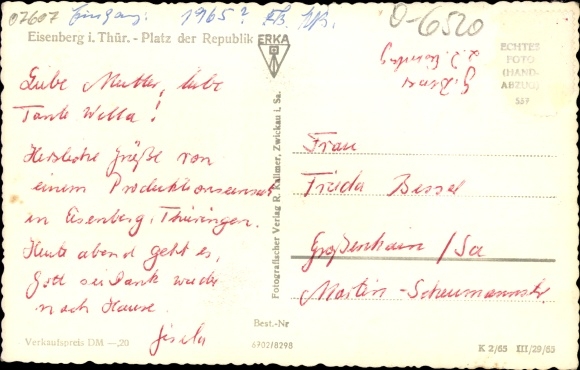 07607 Eingang: 1965? EB.
0-6520
Eisenberg i. Thür. - Platz der Republik
ERKA
ECHTES
FOTO
(HAND-
ABZUG)
539
Liebe Mutter, liebe
Tante Wella!
Herzliche Grüße von
einem Produktionseinsatz
in Eisenberg, Thüringen.
Heute abend geht es,
Gott sei Dank wieder
nach Hause.
Gisela
Fotografischer Verlag R. Kallmer, Zwickau i. Sa.
Frau
Frieda Bessel
Großenhain / Sa
Martin-Scheumannstr.
Best.-Nr
6702/8298
Verkaufspreis DM —,20
K 2/65 III/29/65